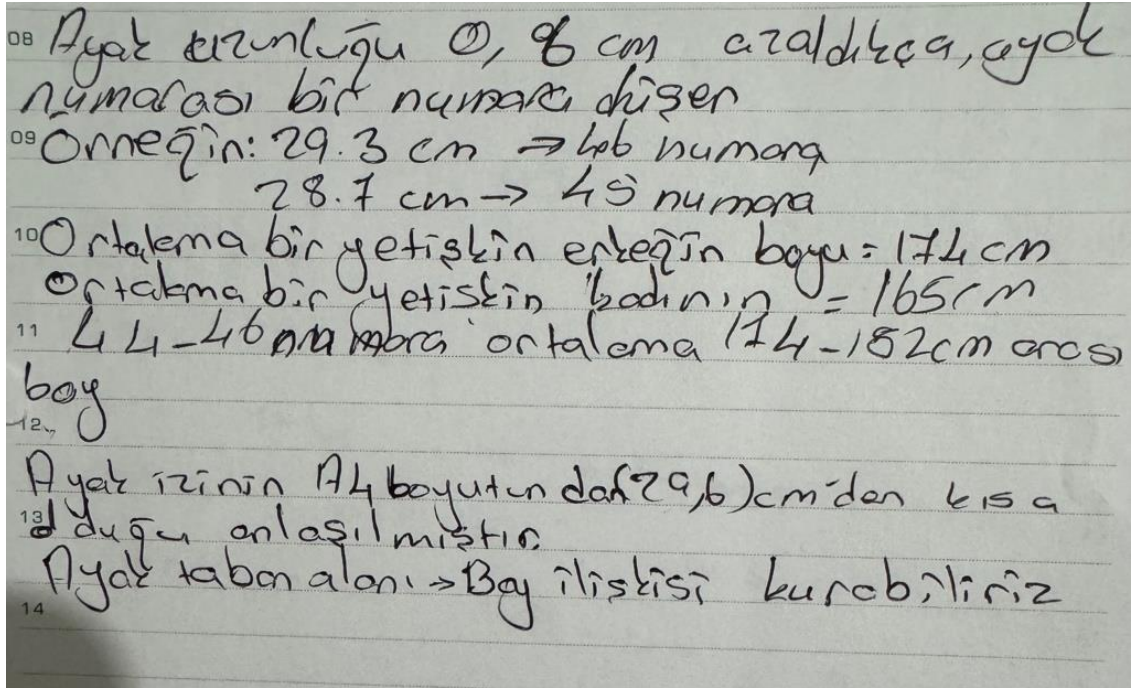 08 Ayak uzunluğu 0,8 cm azaldıkça, ayak
numarası bir numara düşer
09 Örneğin: 29.3 cm → 46 numara
28.7 cm → 45 numara
10 Ortalama bir yetişkin erkeğin boyu = 174 cm
Ortalama bir yetişkin kadının = 165cm
11 44-46 numara ortalama 174-182cm arası
boy
12
Ayak izinin A4 boyutundan (29,6) cm'den kısa
13 olduğu anlaşılmıştır
Ayak taban alanı → Boy ilişkisi kurabiliriz
14